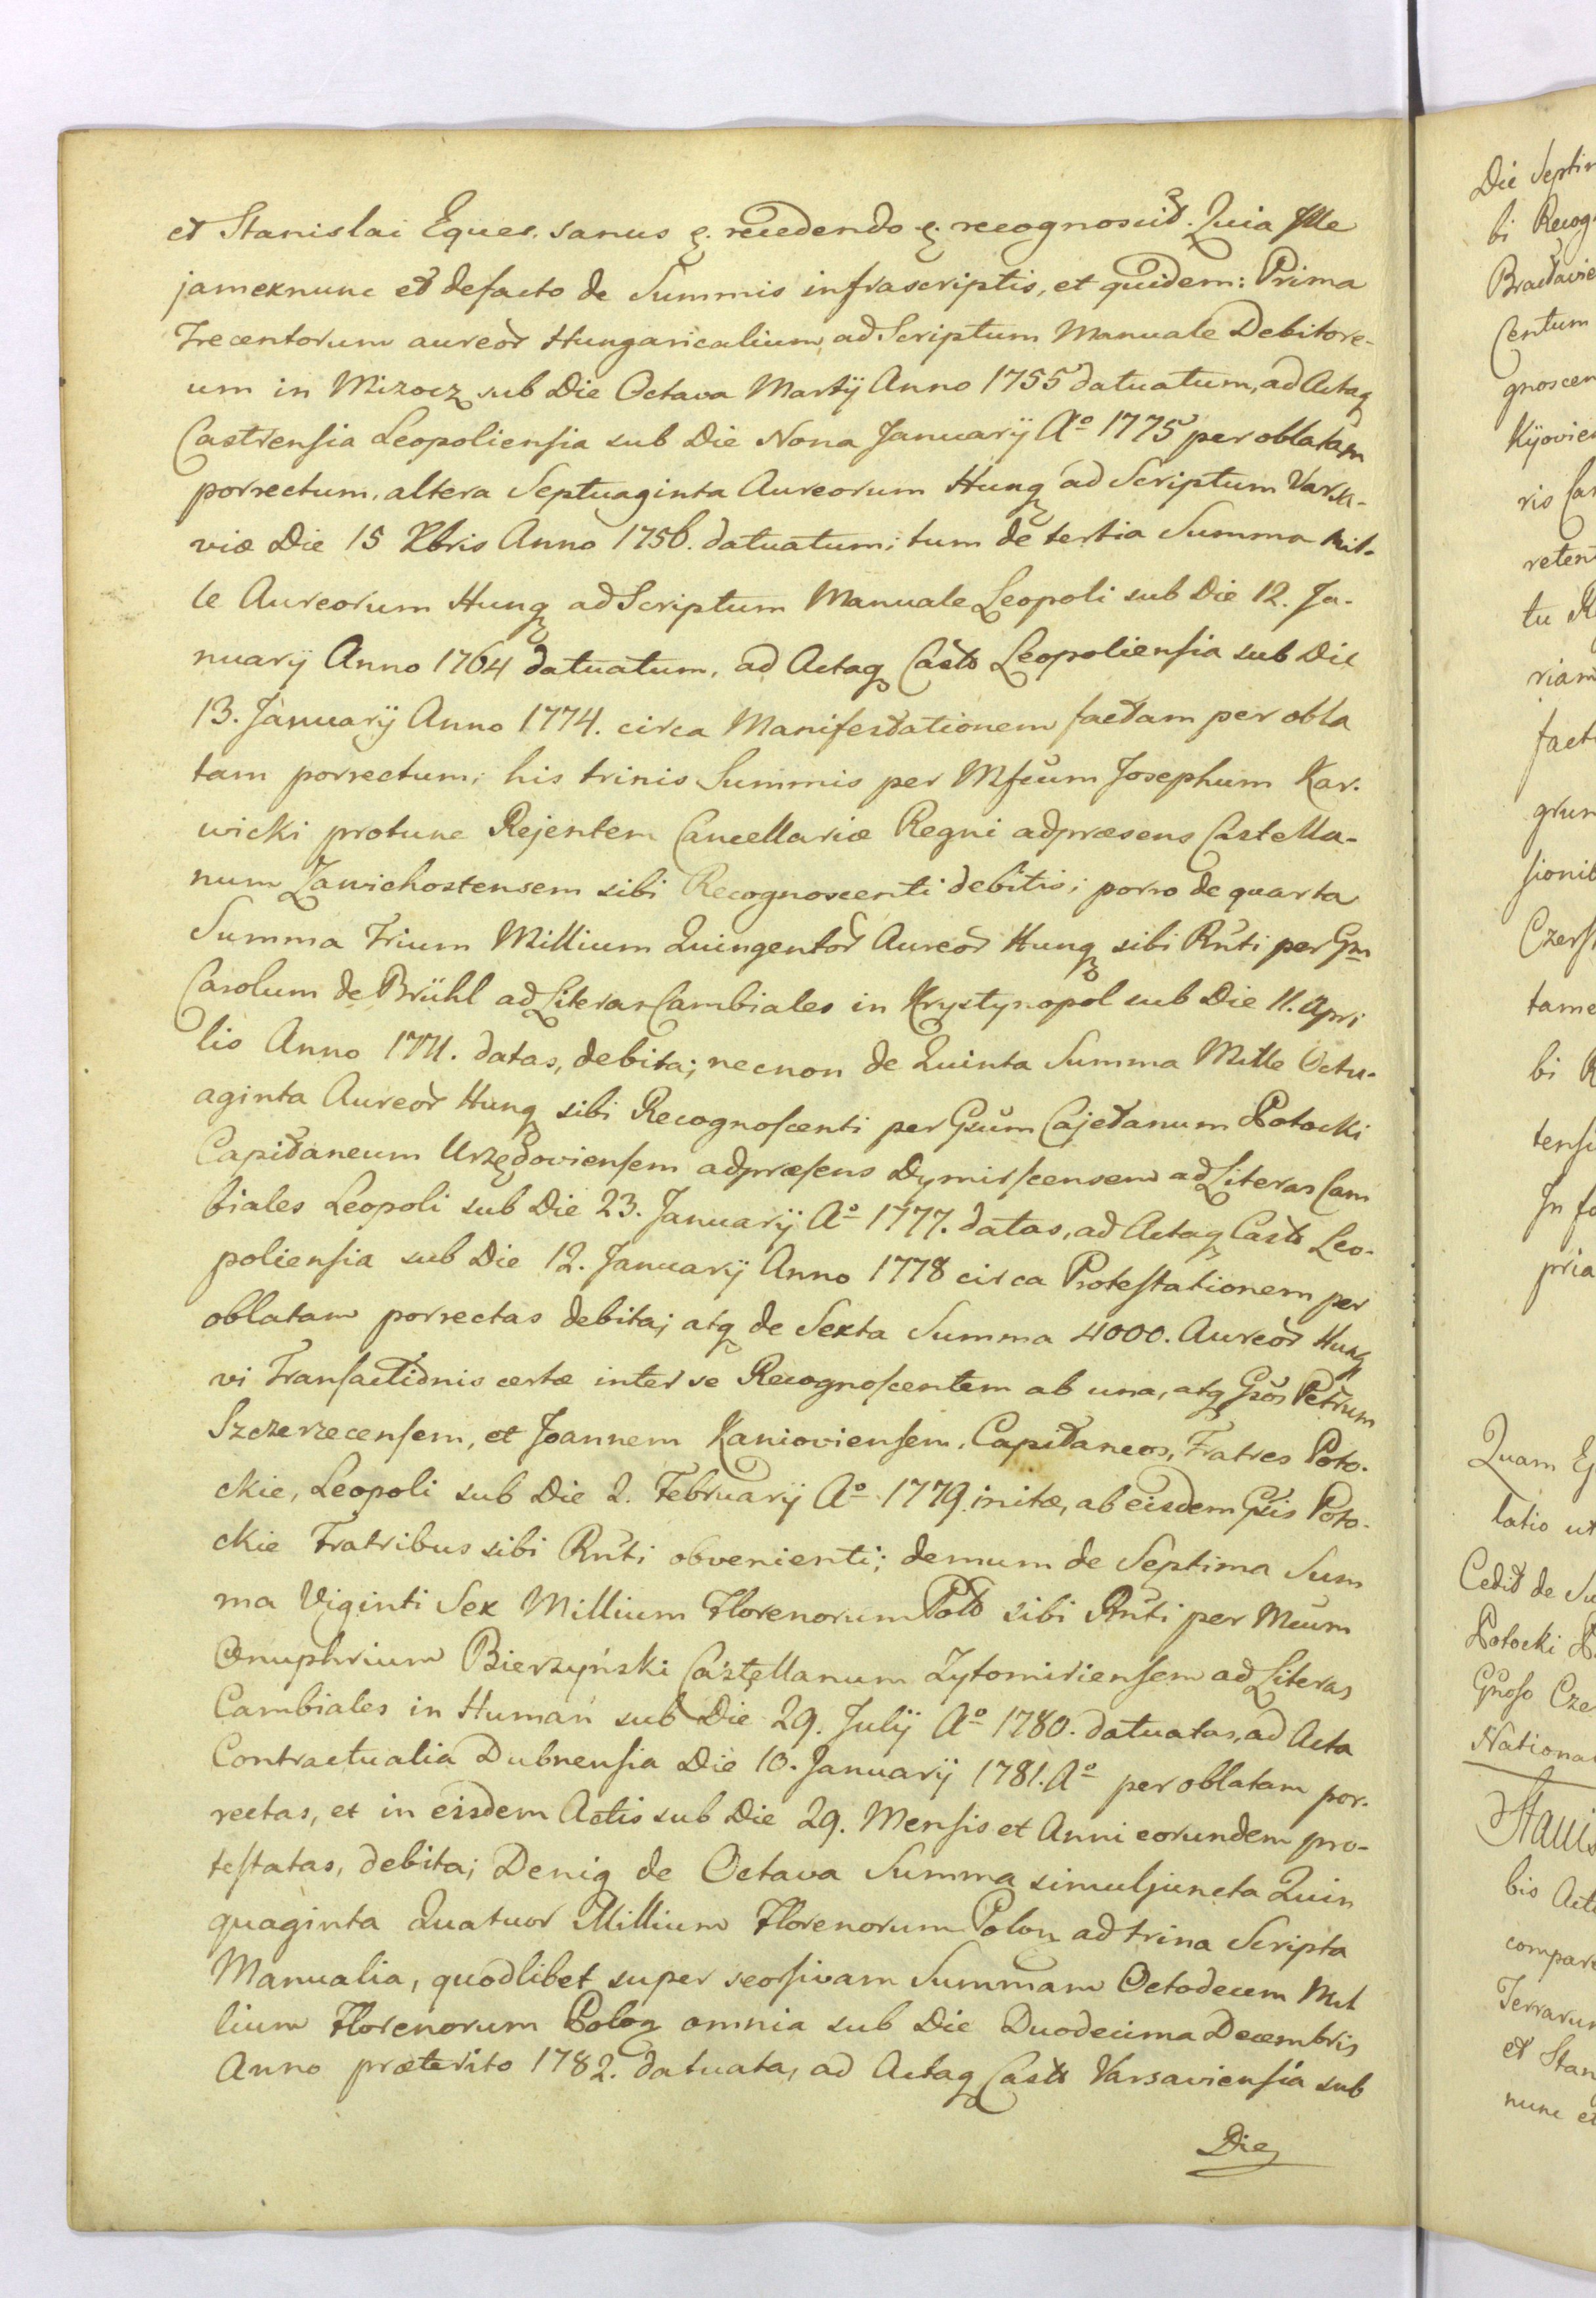 et Stanislai Eques. sanus &c. recedendo &c. recognoscit. Quia Ille
jamexnunc et defacto de Summis infrascriptis, et quidem: Prima
Trecentorum aureor Hungaricalium, ad Scriptum Manuale Debitore-
um in Mizocz sub Die Octava Martij Anno 1755 datuatum, ad Actaq
Castrensia Leopoliensia sub Die Nona Januarij Aº 1775 per oblatam
porrectum, altera Septuaginta Aureorum Hung ad Scriptum Varsa-
viæ Die 15 Xbris Anno 1756. datuatum; tum de tertia Summa Mil-
le Aureorum Hung ad Scriptum Manuale Leopoli sub Die 12. Ja-
nuarij Anno 1764 datuatum, ad Actaq Casts Leopoliensia sub Die
13. Januarij Anno 1774. circa Manifestationem factam per obla
tam porrectum; his trinis Summis per Mfcum Josephum Kar-
wicki protunc Rejentem Cancellariæ Regni adpræsens Castella-
num Zawichostensem sibi Recognoscenti debitis; porro de quarta
Summa Trium Millium Quingentor Aureor Hung sibi Rnti per Gm
Carolum de Brühl ad Literas Cambiales in Krystynopol sub Die 11. Apri
lis Anno 1771. datas, debita; necnon de Quinta Summa Mille Octu-
aginta Aureor Hung sibi Recognoscenti per Gsum Cajetanum Potocki
Capitaneum Urzędoviensem adpræsens Dymirscensem ad Literas Cam
biales Leopoli sub Die 23. Januarij Aº 1777. datas, ad Actaq Casts Leo-
poliensia sub Die 12. Januarij Anno 1778 circa Protestationem per
oblatam porrectas debita; atq de Sexta Summa 4000. Aureor Hung
vi Transactionis certæ inter se Recognoscentem ab una, atq Gsos Petrum
Szczerzecensem, et Joannem Kanioviensem, Capitaneos, Fratres Poto-
ckie, Leopoli sub Die 2. Februarij Aº 1779. initæ, ab eisdem Gsis Poto-
ckie Fratribus sibi Rnti obvenienti; demum de Septima Sum
ma Viginti Sex Millium Florenorum Pols sibi Rnti per Mcum
Onuphrium Bierzyński Castellanum Zytomiriensem ad Literas
Cambiales in Humań sub Die 29. Julij Aº 1780. datuatas, ad Acta
Contractualia Dubnensia Die 10. Januarij 1781. Aº per oblatam por-
rectas, et in eisdem Actis sub Die 29. Mensis et Anni eorundem pro-
testatas, debita; Deniq de Octava Summa simuljuncta Quin
quaginta Quatuor Millium Florenorum Polon ad trina Scripta
Manualia, quodlibet super seorsivam Summam Octodecem Mil
lium Florenorum Polon omnia sub Die Duodecima Decembris
Anno præterito 1782. datuata, ad Actaq Casts Varsaviensia sub
Die
Die
bi Recog
Centum
gnoscen
ris
reten
tu
riam
fact
grun
sionib
tame
bi
tensi
In fo
pria
Quam
latio ut
Cedit de Su
Potocki
Nationa
Stanis
bis Acti
compare
Terrarum
et Stan
nunc et